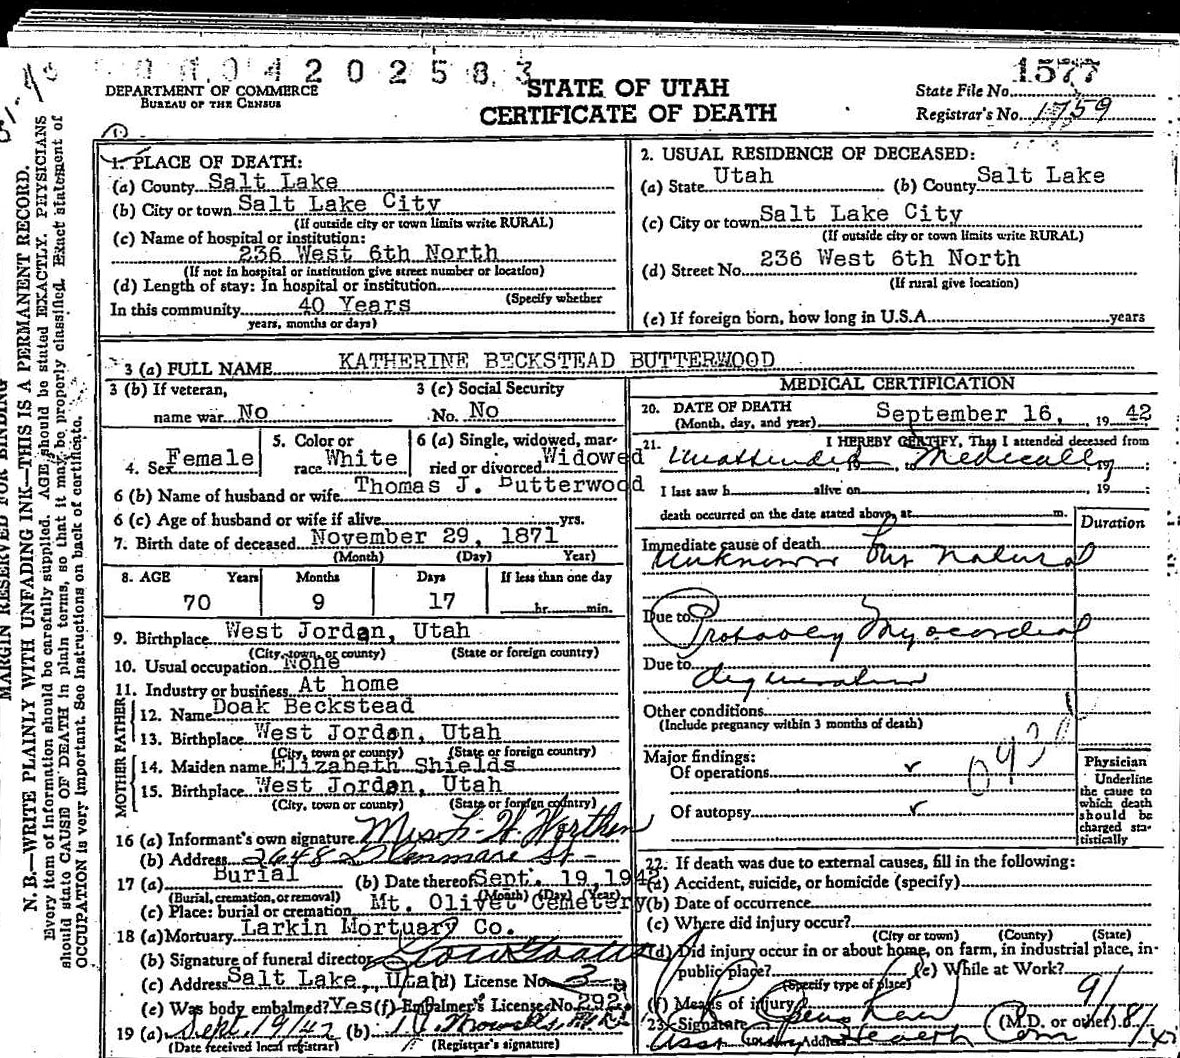 0 4 2 0 2 5 8 3
DEPARTMENT OF COMMERCE
BUREAU OF THE CENSUS
STATE OF UTAH
CERTIFICATE OF DEATH
1577
State File No.
Registrar's No. 1759
MARGIN RESERVED FOR BINDING
N. B.—WRITE PLAINLY WITH UNFADING INK—THIS IS A PERMANENT RECORD.
Every item of information should be carefully supplied. AGE should be stated EXACTLY. PHYSICIANS
should state CAUSE OF DEATH in plain terms, so that it may be properly classified. Exact statement of
OCCUPATION is very important. See instructions on back of certificate.
1. PLACE OF DEATH:
(a) County Salt Lake
(b) City or town Salt Lake City
(If outside city or town limits write RURAL)
(c) Name of hospital or institution:
236 West 6th North
(If not in hospital or institution give street number or location)
(d) Length of stay: In hospital or institution
(Specify whether
In this community 40 Years
years, months or days)
2. USUAL RESIDENCE OF DECEASED:
(a) State Utah (b) County Salt Lake
(c) City or town Salt Lake City
(If outside city or town limits write RURAL)
(d) Street No. 236 West 6th North
(If rural give location)
(e) If foreign born, how long in U.S.A. years
3 (a) FULL NAME KATHERINE BECKSTEAD BUTTERWOOD
3 (b) If veteran,
name war No
3 (c) Social Security
No. No
4. Sex Female
5. Color or
race White
6 (a) Single, widowed, mar-
ried or divorced Widowed
6 (b) Name of husband or wife Thomas J. Butterwood
6 (c) Age of husband or wife if alive yrs.
7. Birth date of deceased November 29, 1871
(Month) (Day) Year)
8. AGE Years Months Days If less than one day
70 9 17 hr. min.
9. Birthplace West Jordan, Utah
(City, town, or county) (State or foreign country)
10. Usual occupation None
11. Industry or business At home
FATHER
12. Name Doak Beckstead
13. Birthplace West Jordan, Utah
(City, town or county) (State or foreign country)
MOTHER
14. Maiden name Elizabeth Shields
15. Birthplace West Jordan, Utah
(City, town or county) (State or foreign country)
16 (a) Informant's own signature H. Worthen
(b) Address 2648 St
17 (a) Burial (b) Date thereof Sept. 19, 1942
(Burial, cremation, or removal) (Month) (Day) (Year)
(c) Place: burial or cremation Mt. Olivet Cemetery
18 (a) Mortuary Larkin Mortuary Co.
(b) Signature of funeral director
(c) Address Salt Lake, Utah (d) License No. 3
(e) Was body embalmed? Yes (f) Embalmer's License No. 292
19 (a) Sept 19/42 (b)
(Date received local registrar) (Registrar's signature)
MEDICAL CERTIFICATION
20. DATE OF DEATH
(Month, day, and year) September 16, 19 42
21. I HEREBY CERTIFY, That I attended deceased from
Unattended 19 to Medically 19
I last saw h alive on , 19 ;
death occurred on the date stated above, at m.
Duration
Immediate cause of death
Unknown but natural
Due to
Probably Myocardial
Due to
degeneration
Other conditions
(Include pregnancy within 3 months of death)
Major findings:
Of operations
Of autopsy
Physician
Underline
the cause to
which death
should be
charged sta-
tistically
22. If death was due to external causes, fill in the following:
(a) Accident, suicide, or homicide (specify)
(b) Date of occurrence
(c) Where did injury occur?
(City or town) (County) (State)
(d) Did injury occur in or about home, on farm, in industrial place, in-
public place? (e) While at Work?
(Specify type of place)
(f) Means of injury
23. Signature (M.D. or other)
Address Asst Health Com 9/18/42